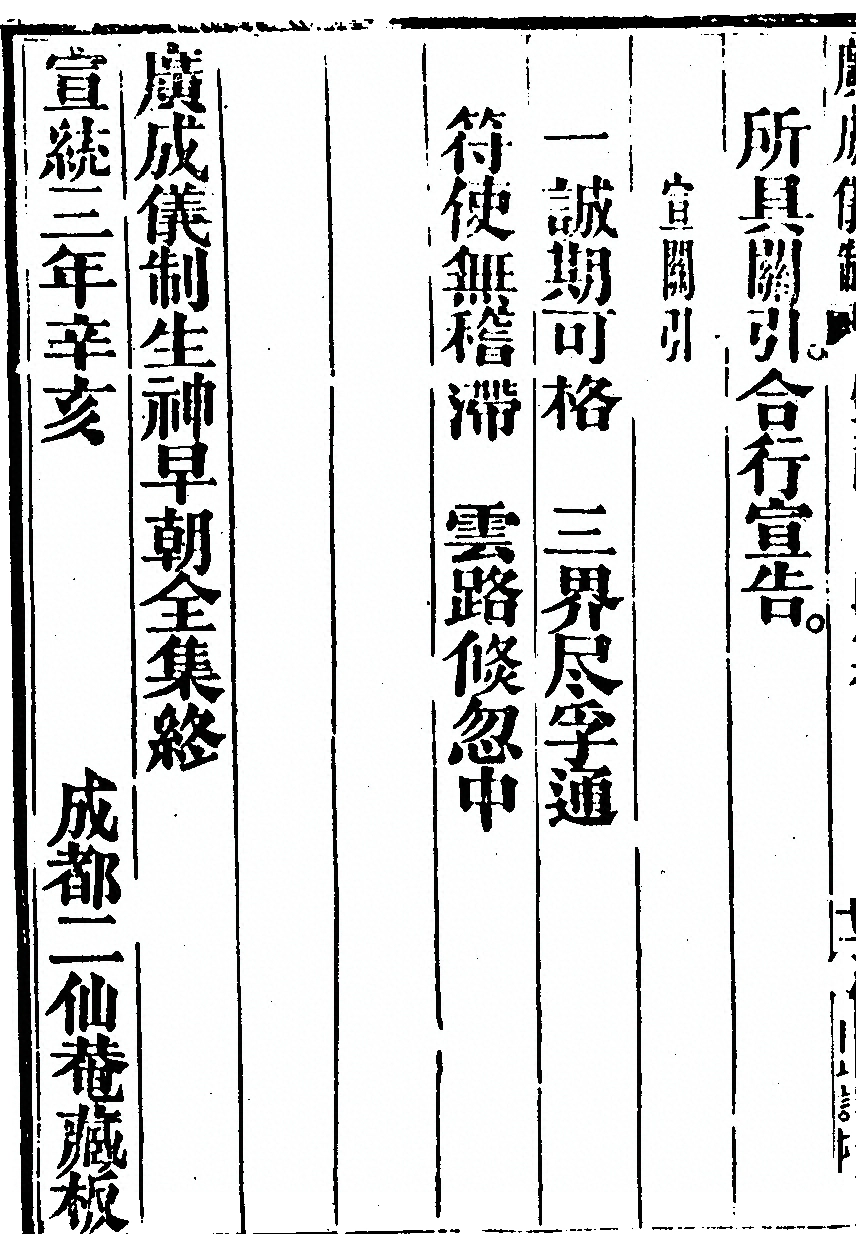 所具關引。合行宣告。
宣關引
一誠期可格　三界尽孚通
符使無稽滯　雲路倐忽中
廣成儀制生神早朝全集終
宣統三年辛亥　成都二仙菴藏板